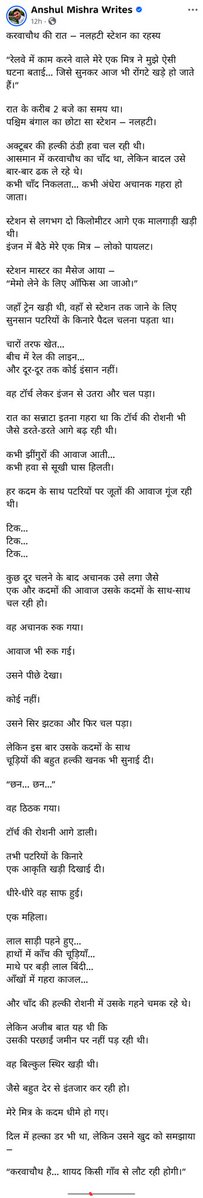 Anshul Mishra Writes
12h
करवाचौथ की रात – नलहटी स्टेशन का रहस्य
“रेलवे में काम करने वाले मेरे एक मित्र ने मुझे ऐसी
घटना बताई… जिसे सुनकर आज भी रोंगटे खड़े हो जाते
हैं।”
रात के करीब 2 बजे का समय था।
पश्चिम बंगाल का छोटा सा स्टेशन – नलहटी।
अक्टूबर की हल्की ठंडी हवा चल रही थी।
आसमान में करवाचौथ का चाँद था, लेकिन बादल उसे
बार-बार ढक ले रहे थे।
कभी चाँद निकलता… कभी अंधेरा अचानक गहरा हो
जाता।
स्टेशन से लगभग दो किलोमीटर आगे एक मालगाड़ी खड़ी
थी।
इंजन में बैठे मेरे एक मित्र – लोको पायलट।
स्टेशन मास्टर का मैसेज आया –
“मेमो लेने के लिए ऑफिस आ जाओ।”
जहाँ ट्रेन खड़ी थी, वहाँ से स्टेशन तक जाने के लिए
सुनसान पटरियों के किनारे पैदल चलना पड़ता था।
चारों तरफ खेत…
बीच में रेल की लाइन…
और दूर-दूर तक कोई इंसान नहीं।
वह टॉर्च लेकर इंजन से उतरा और चल पड़ा।
रात का सन्नाटा इतना गहरा था कि टॉर्च की रोशनी भी
जैसे डरते-डरते आगे बढ़ रही थी।
कभी झींगुरों की आवाज आती…
कभी हवा से सूखी घास हिलती।
हर कदम के साथ पटरियों पर जूतों की आवाज गूंज रही
थी।
टिक…
टिक…
टिक…
कुछ दूर चलने के बाद अचानक उसे लगा जैसे
एक और कदमों की आवाज उसके कदमों के साथ-साथ
चल रही हो।
वह अचानक रुक गया।
आवाज भी रुक गई।
उसने पीछे देखा।
कोई नहीं।
उसने सिर झटका और फिर चल पड़ा।
लेकिन इस बार उसके कदमों के साथ
चूड़ियों की बहुत हल्की खनक भी सुनाई दी।
“छन… छन…”
वह ठिठक गया।
टॉर्च की रोशनी आगे डाली।
तभी पटरियों के किनारे
एक आकृति खड़ी दिखाई दी।
धीरे-धीरे वह साफ हुई।
एक महिला।
लाल साड़ी पहने हुए…
हाथों में काँच की चूड़ियाँ…
माथे पर बड़ी लाल बिंदी…
आँखों में गहरा काजल…
और चाँद की हल्की रोशनी में उसके गहने चमक रहे थे।
लेकिन अजीब बात यह थी कि
उसकी परछाईं जमीन पर नहीं पड़ रही थी।
वह बिल्कुल स्थिर खड़ी थी।
जैसे बहुत देर से इंतजार कर रही हो।
मेरे मित्र के कदम धीमे हो गए।
दिल में हल्का डर भी था, लेकिन उसने खुद को समझाया
–
“करवाचौथ है… शायद किसी गाँव से लौट रही होगी।”